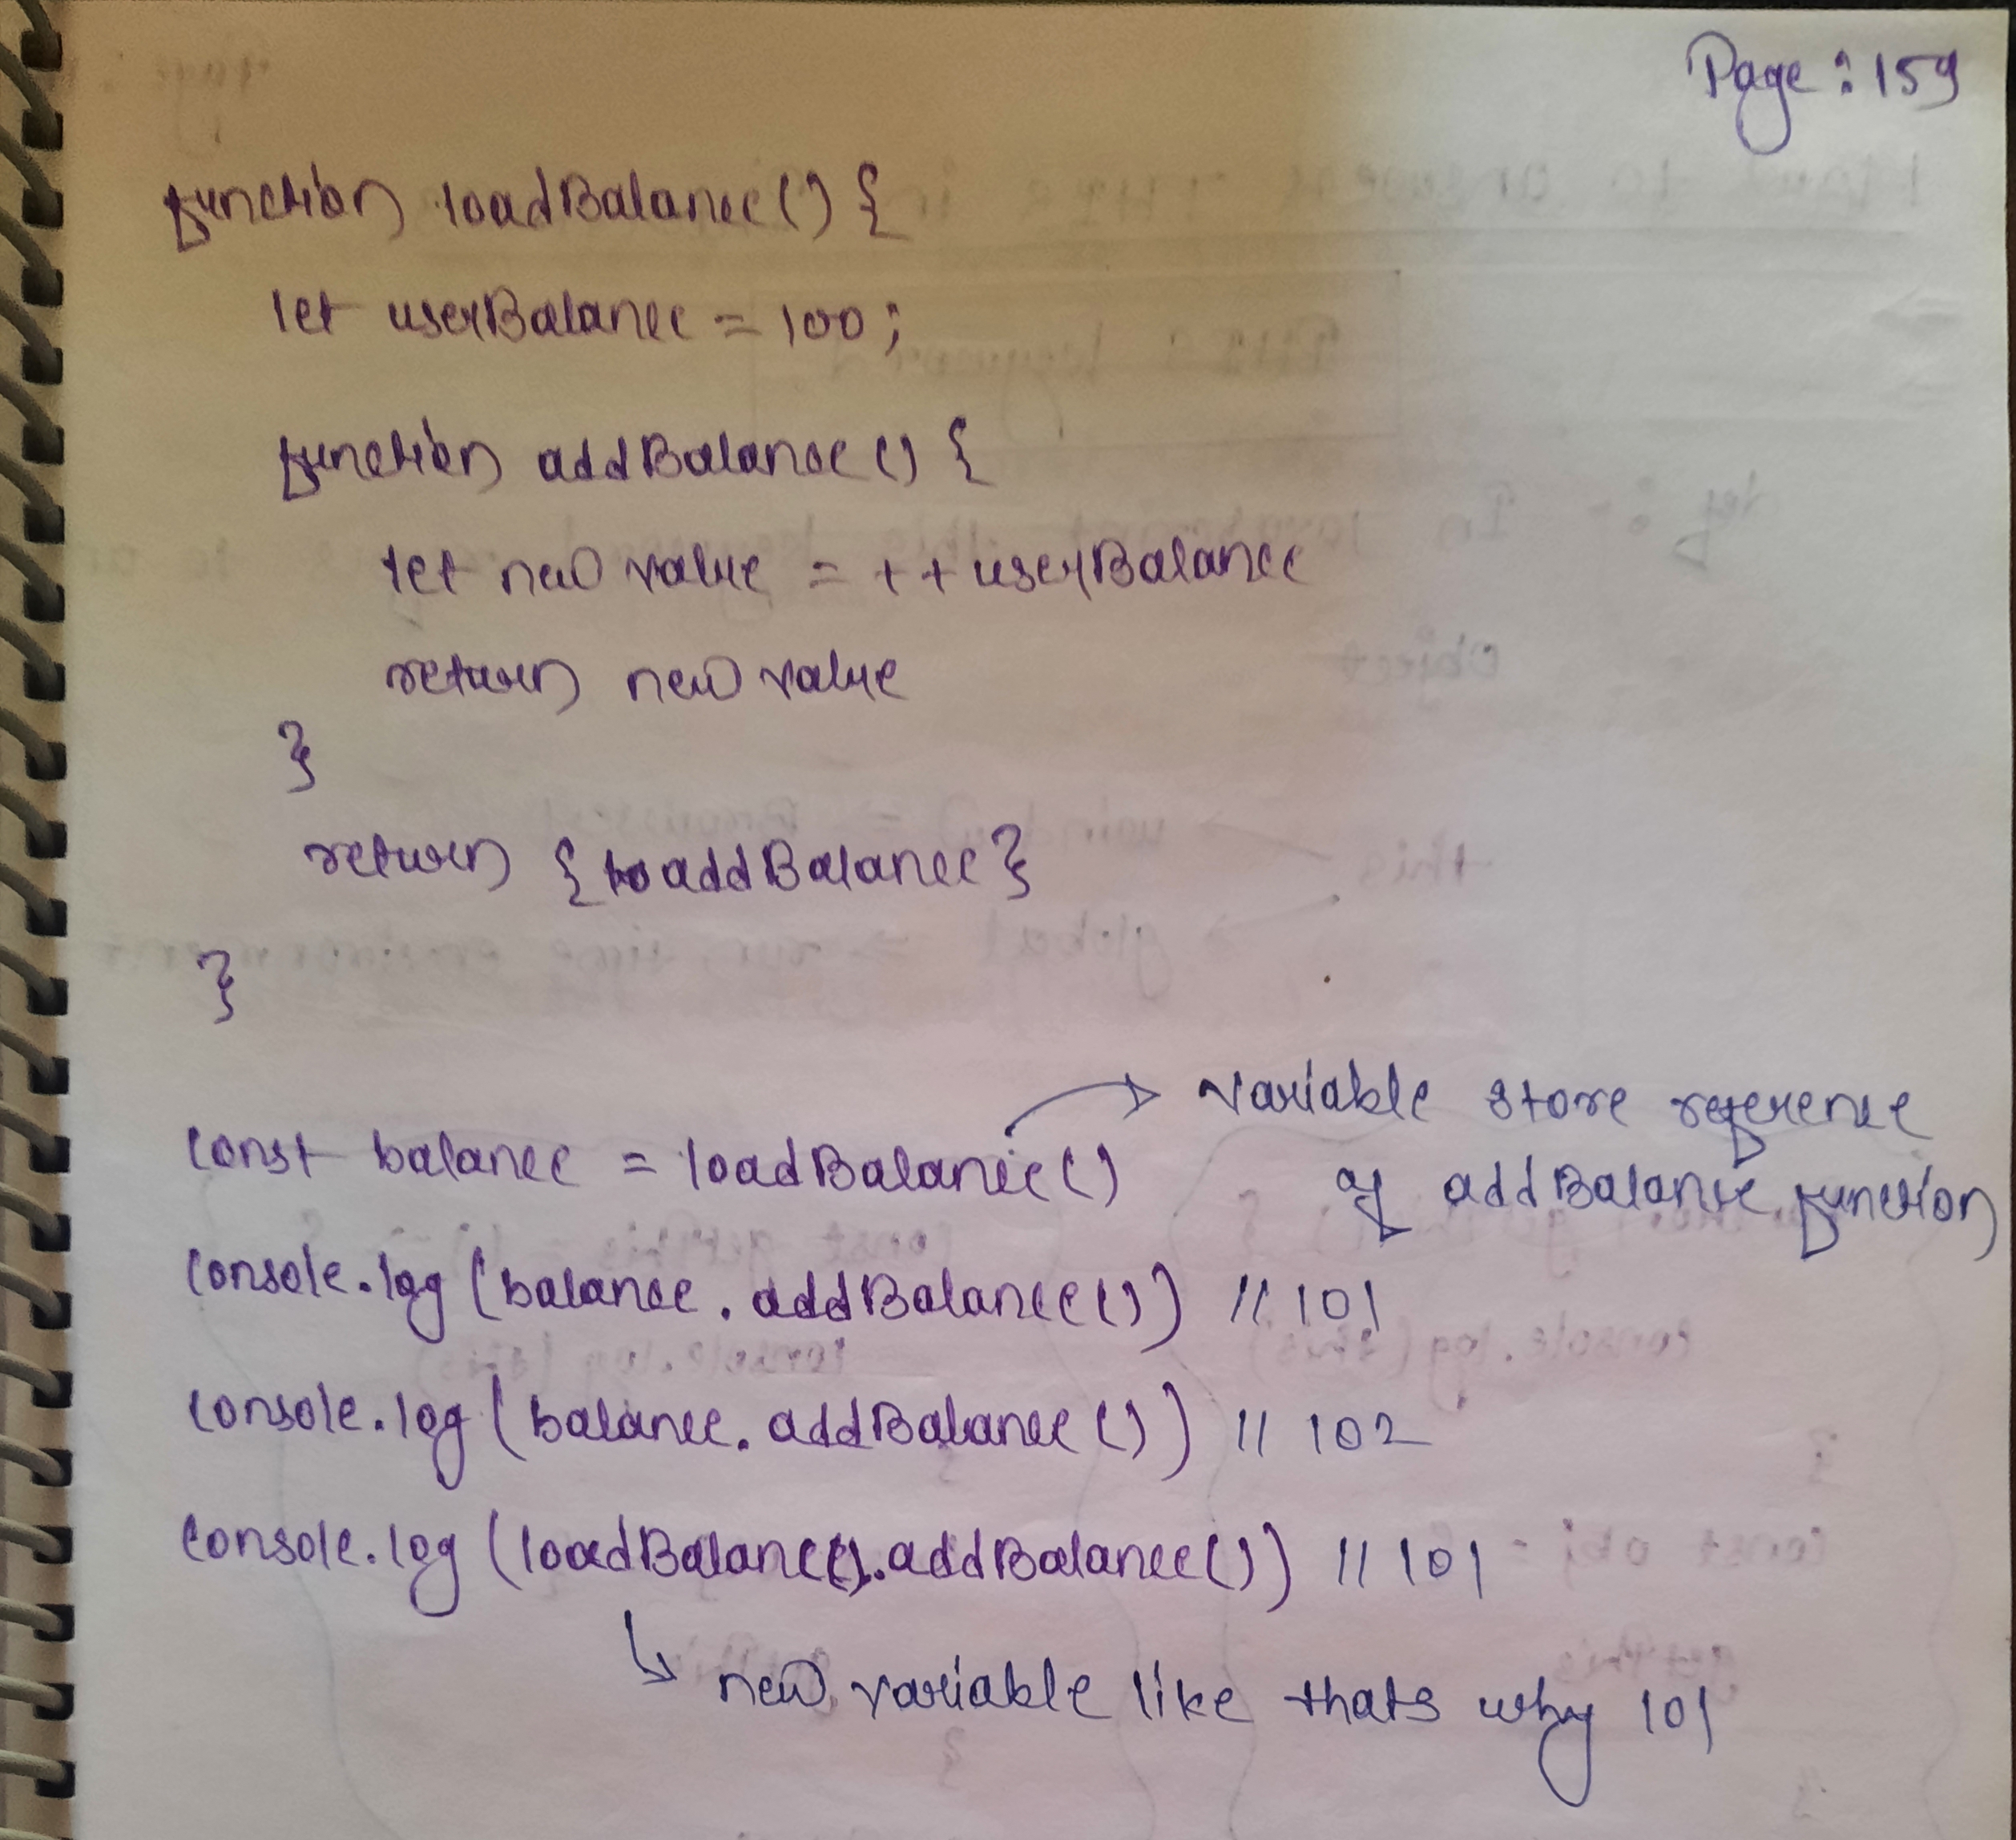 Page : 159
function loadBalance() {
let userBalance = 100;
function addBalance() {
let new value = ++userBalance
return new value
}
return { addBalance}
}
const balance = loadBalance() → variable store reference
of addBalance function
console.log (balance.addBalance()) // 101
console.log (balance.addBalance()) // 102
console.log (loadBalance().addBalance()) // 101
↳ new variable like thats why 101